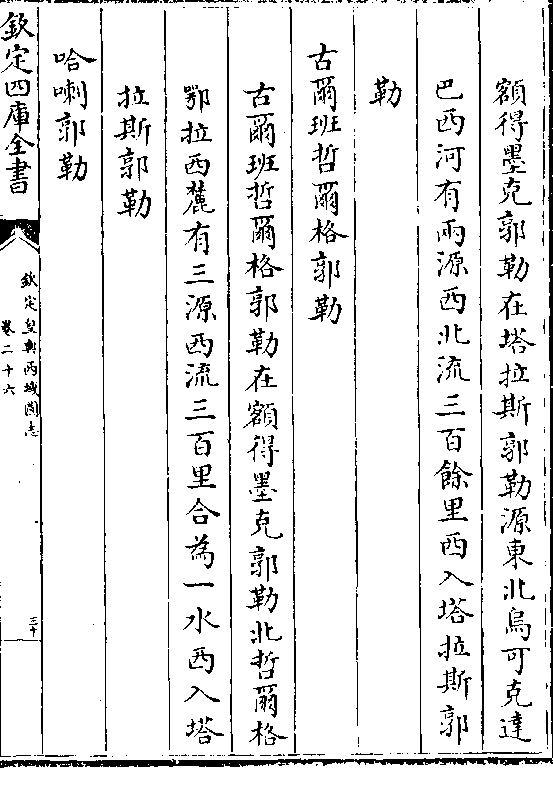 額得墨克郭勒在塔拉斯郭勒源東北烏可克達
巴西河有兩源西北流三百餘里西入塔拉斯郭
勒
古爾班哲爾格郭勒
古爾班哲爾格郭勒在額得墨克郭勒北哲爾格
鄂拉西麓有三源西流三百里合為一水西入塔
拉斯郭勒
哈喇郭勒
欽定四庫全書
欽定皇輿西域圖志
卷二十六
三十